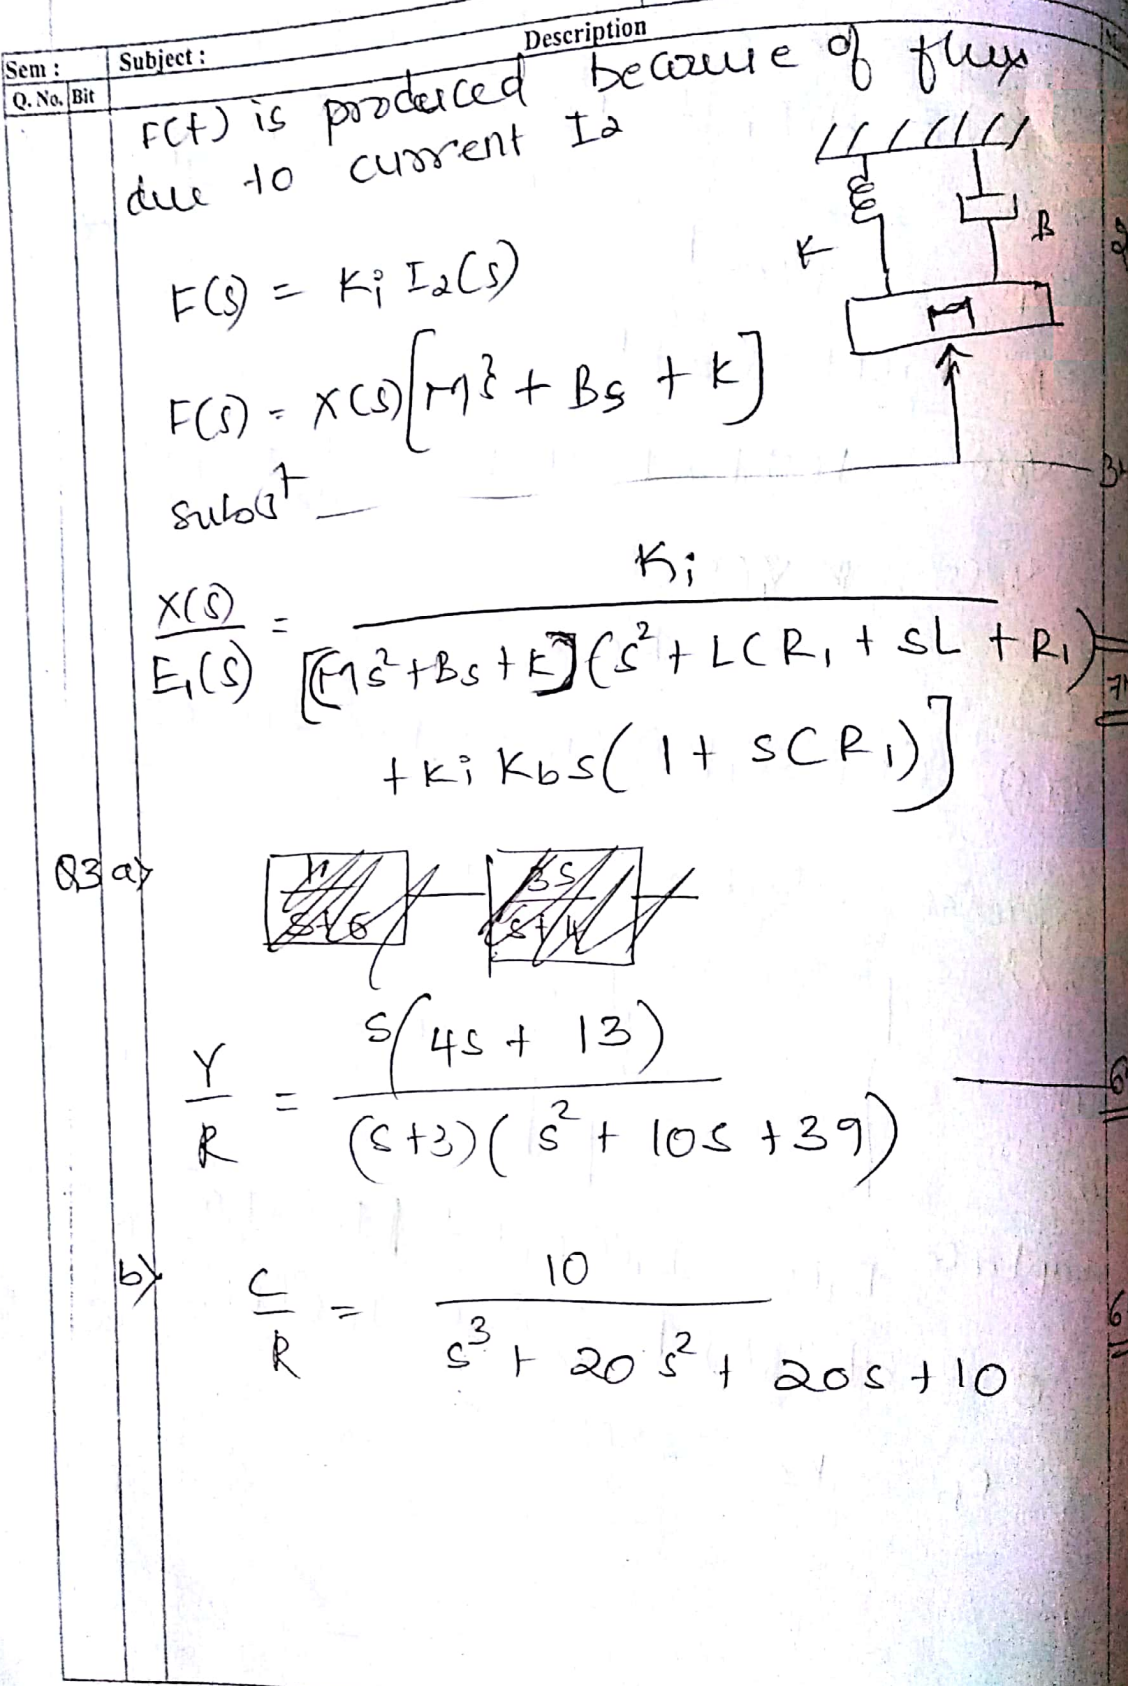 Sem : Subject : Description
Q. No. Bit
F(t) is produced because of flux
due to current I2
K B
M
F(s) = Ki I2(s)
F(s) = X(s)[Ms² + Bs + K]
subst
X(s)/E1(s) = Ki / [[Ms²+Bs+K](s²+LCR1+sL+R1)
+ Ki Kb s(1+sCR1)]
Q3 a)
Y/R = s(4s+13) / (s+3)(s²+10s+39)
b) C/R = 10 / s³+20s²+20s+10